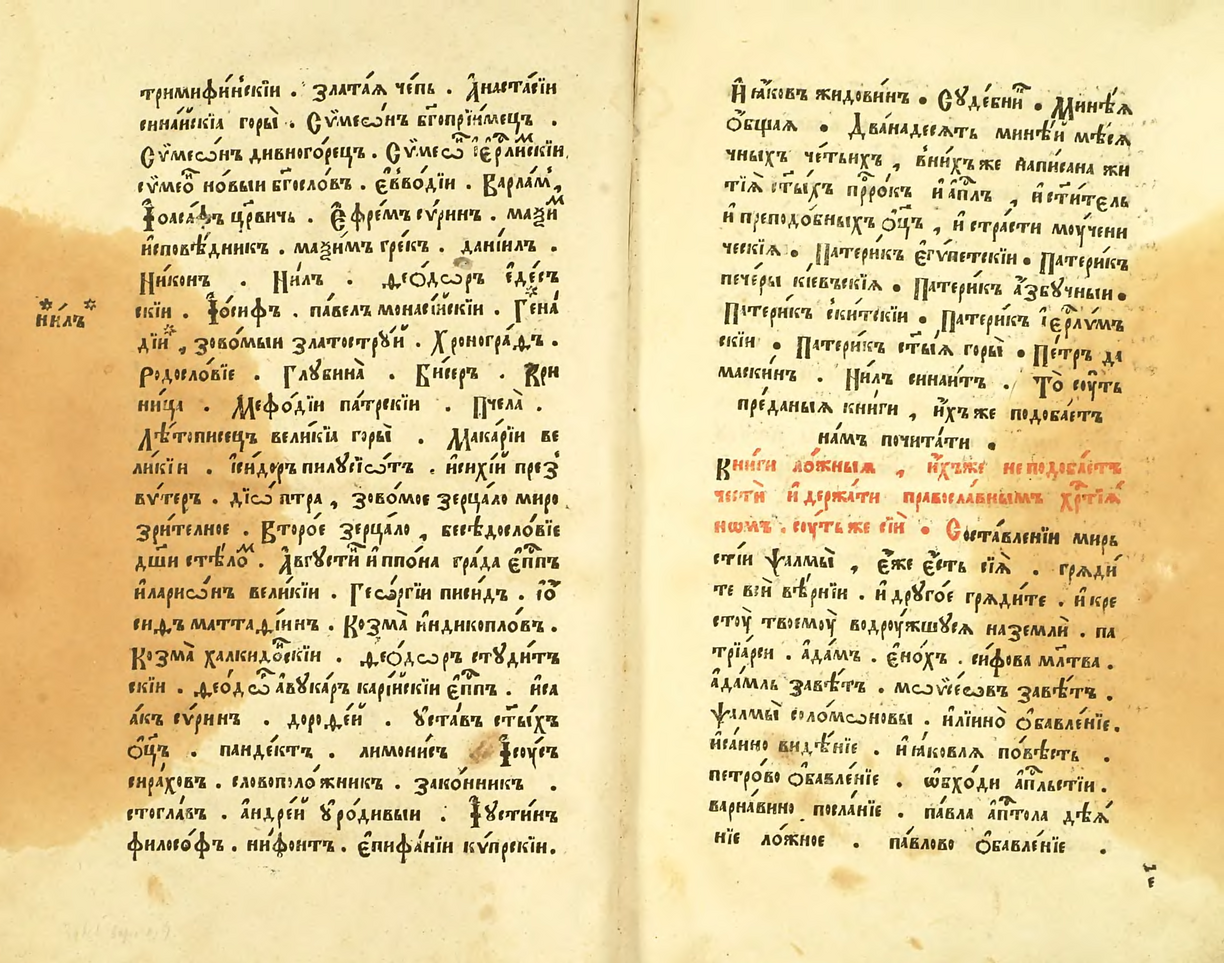 тримифи́нскїи . златаѧ чепь . Анастасїи
синаискїѧ горы̀ . Сѵмеѡ́нъ бг҃опрїи́мецъ .
Сѵмеѡ́нъ дивного́рецъ . Сѵмеѡⷩ҇ і҆ерⷭ҇лимскїи,
сѵмеоⷩ҇ но́выи бг҃осло́въ . є҆ѵво́дїи . Варлаⷨ,
І҆оаса́фъ цр҃вичь . Є҆фре́мъ сѵ́ринъ . маѯиⷨ
исповѣ́дникъ . маѯимъ гре́къ . данїилъ .
Ни́конъ . Нилъ . Ѳео́дѡръ є҆де́съ
скїи . І҆о́сифъ . па́велъ монаси́искїи . Гена́
дїи , зово́мыи златостру́й . Хроногра́фъ .
Родосло́вїе . Глꙋбина̀ . Бисеръ . Кри
ница . Меѳо́дїи па́трскїи . Пчела̀ .
Лѣ́тописецъ вели́кїѧ горы̀ . Мака́рїи ве
ликїи . І҆си́доръ пилꙋсїѡтъ . и҆си́хїй през
вѵ́теръ . дїѡ́птра , зово́мое зерца́ло миро
зри́тельное . Второ́е зерца́ло , бесѣдосло́вїе
дш҃и стѣ́лоⷨ . Авгꙋсти́ и҆ппо́на гра́да є҆пⷭ҇пъ
и҆ларисѡ́нъ вели́кїи . Гео́ргїи писи́дъ . іѡ҆
сифъ маттаѳїинъ . Козма̀ и҆ндикопло́въ .
Козма̀ халкидоⷩ҇скїи . Ѳео́дѡръ стꙋди́тъ
скїи . Ѳео́дѡ а҆вꙋка́ръ карїискїи є҆пⷭ҇пъ . и҆са
а́къ сѵринъ . дороѳе́й . ᲂу҆ста́въ ст҃ы́хъ
ѻц҃ъ . панде́ктъ . лимони́съ І҆сꙋсъ
сира́ховъ . словополо́жникъ . зако́нникъ .
стогла́въ . андре́й ᲂу҆ро́дивыи . І҆ꙋсти́нъ
филосо́фъ . ни́фонтъ . Є҆пифа́нїи кѵ́прскїи .
ни́лъ
И҆ ꙗ҆ковъ жидови́нъ . Сꙋде́бниⷦ . Мине́ѧ
ѻ҆бщаѧ . Двана́десѧть мине́й мѣсѧ
чныхъ че́тьихъ , в ни́хъ же написана жи
тїѧ̀ ст҃ы́хъ прⷪ҇ро́къ и҆ а҆пⷭ҇лъ , и҆ ст҃и́тель
и҆ преподо́бныхъ ѻц҃ъ , и҆ стра́сти моу́чени
ческїѧ . Патери́къ є҆гѵ́петскїи . Патери́къ
пече́ры кїевъскїѧ . Патери́къ а҆збꙋчныи .
Патери́къ ски́тскїи . Патери́къ і҆ерⷭ҇лимъ
скїи . Патери́къ ст҃ы́ѧ горы̀ . Пе́тръ да
маски́нъ . Ни́лъ синаи́тъ . То̀ соу́ть
пре́даныѧ кни́ги , и҆́хъ же подоба́етъ
на́мъ почита́ти .
Кни́ги ло́жныѧ , и҆́хъ же не подоба́етъ
че́сти и҆ держа́ти правосла́внымъ хрⷭ҇тїѧ́
нѡмъ . соу́ть же сїѝ . Соста́вленїи миръ
стїи ѱалмы̀ , є҆́же є҆́сть сїѧ̀ . грѧди́
те всѝ вѣ́рнїи . и҆ дрꙋго́е грѧди́те . и҆ кре
стоу̀ твоемоу̀ водроужшꙋсѧ на землѝ . па
трїа́рси . ада́мъ . є҆но́хъ . си́фова мл҃тва .
ада́мль завѣ́тъ . мѡѷсе́овъ завѣ́тъ .
ѱалмы̀ соломѡновы . и҆лїино̀ ѻ҆бавле́нїе .
и҆са́ино видѣ́нїе . и҆ ꙗ҆ковлѧ по́вѣсть .
петро́во ѻ҆бавле́нїе . ѡ҆бхо́ди а҆пⷭ҇льстїи .
варна́вино посла́нїе . па́вла а҆пⷭ҇тола дѣѧ́
нїе ло́жное . па́влово ѻ҆бавле́нїе .
є